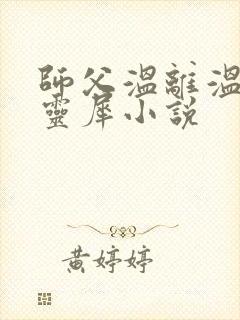 師父溫離溫
靈犀小說
黃婷婷